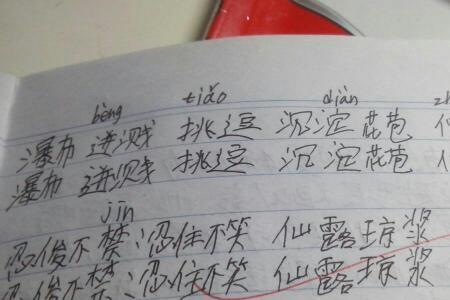 bèng tiǎo diàn zh
瀑布 迸溅 挑逗 沉淀 花苞
瀑布 迸溅 挑逗 沉淀 花苞
jīn
忍俊不禁:忍住不笑 仙露琼浆
忍俊不禁:忍住不笑 仙露琼浆